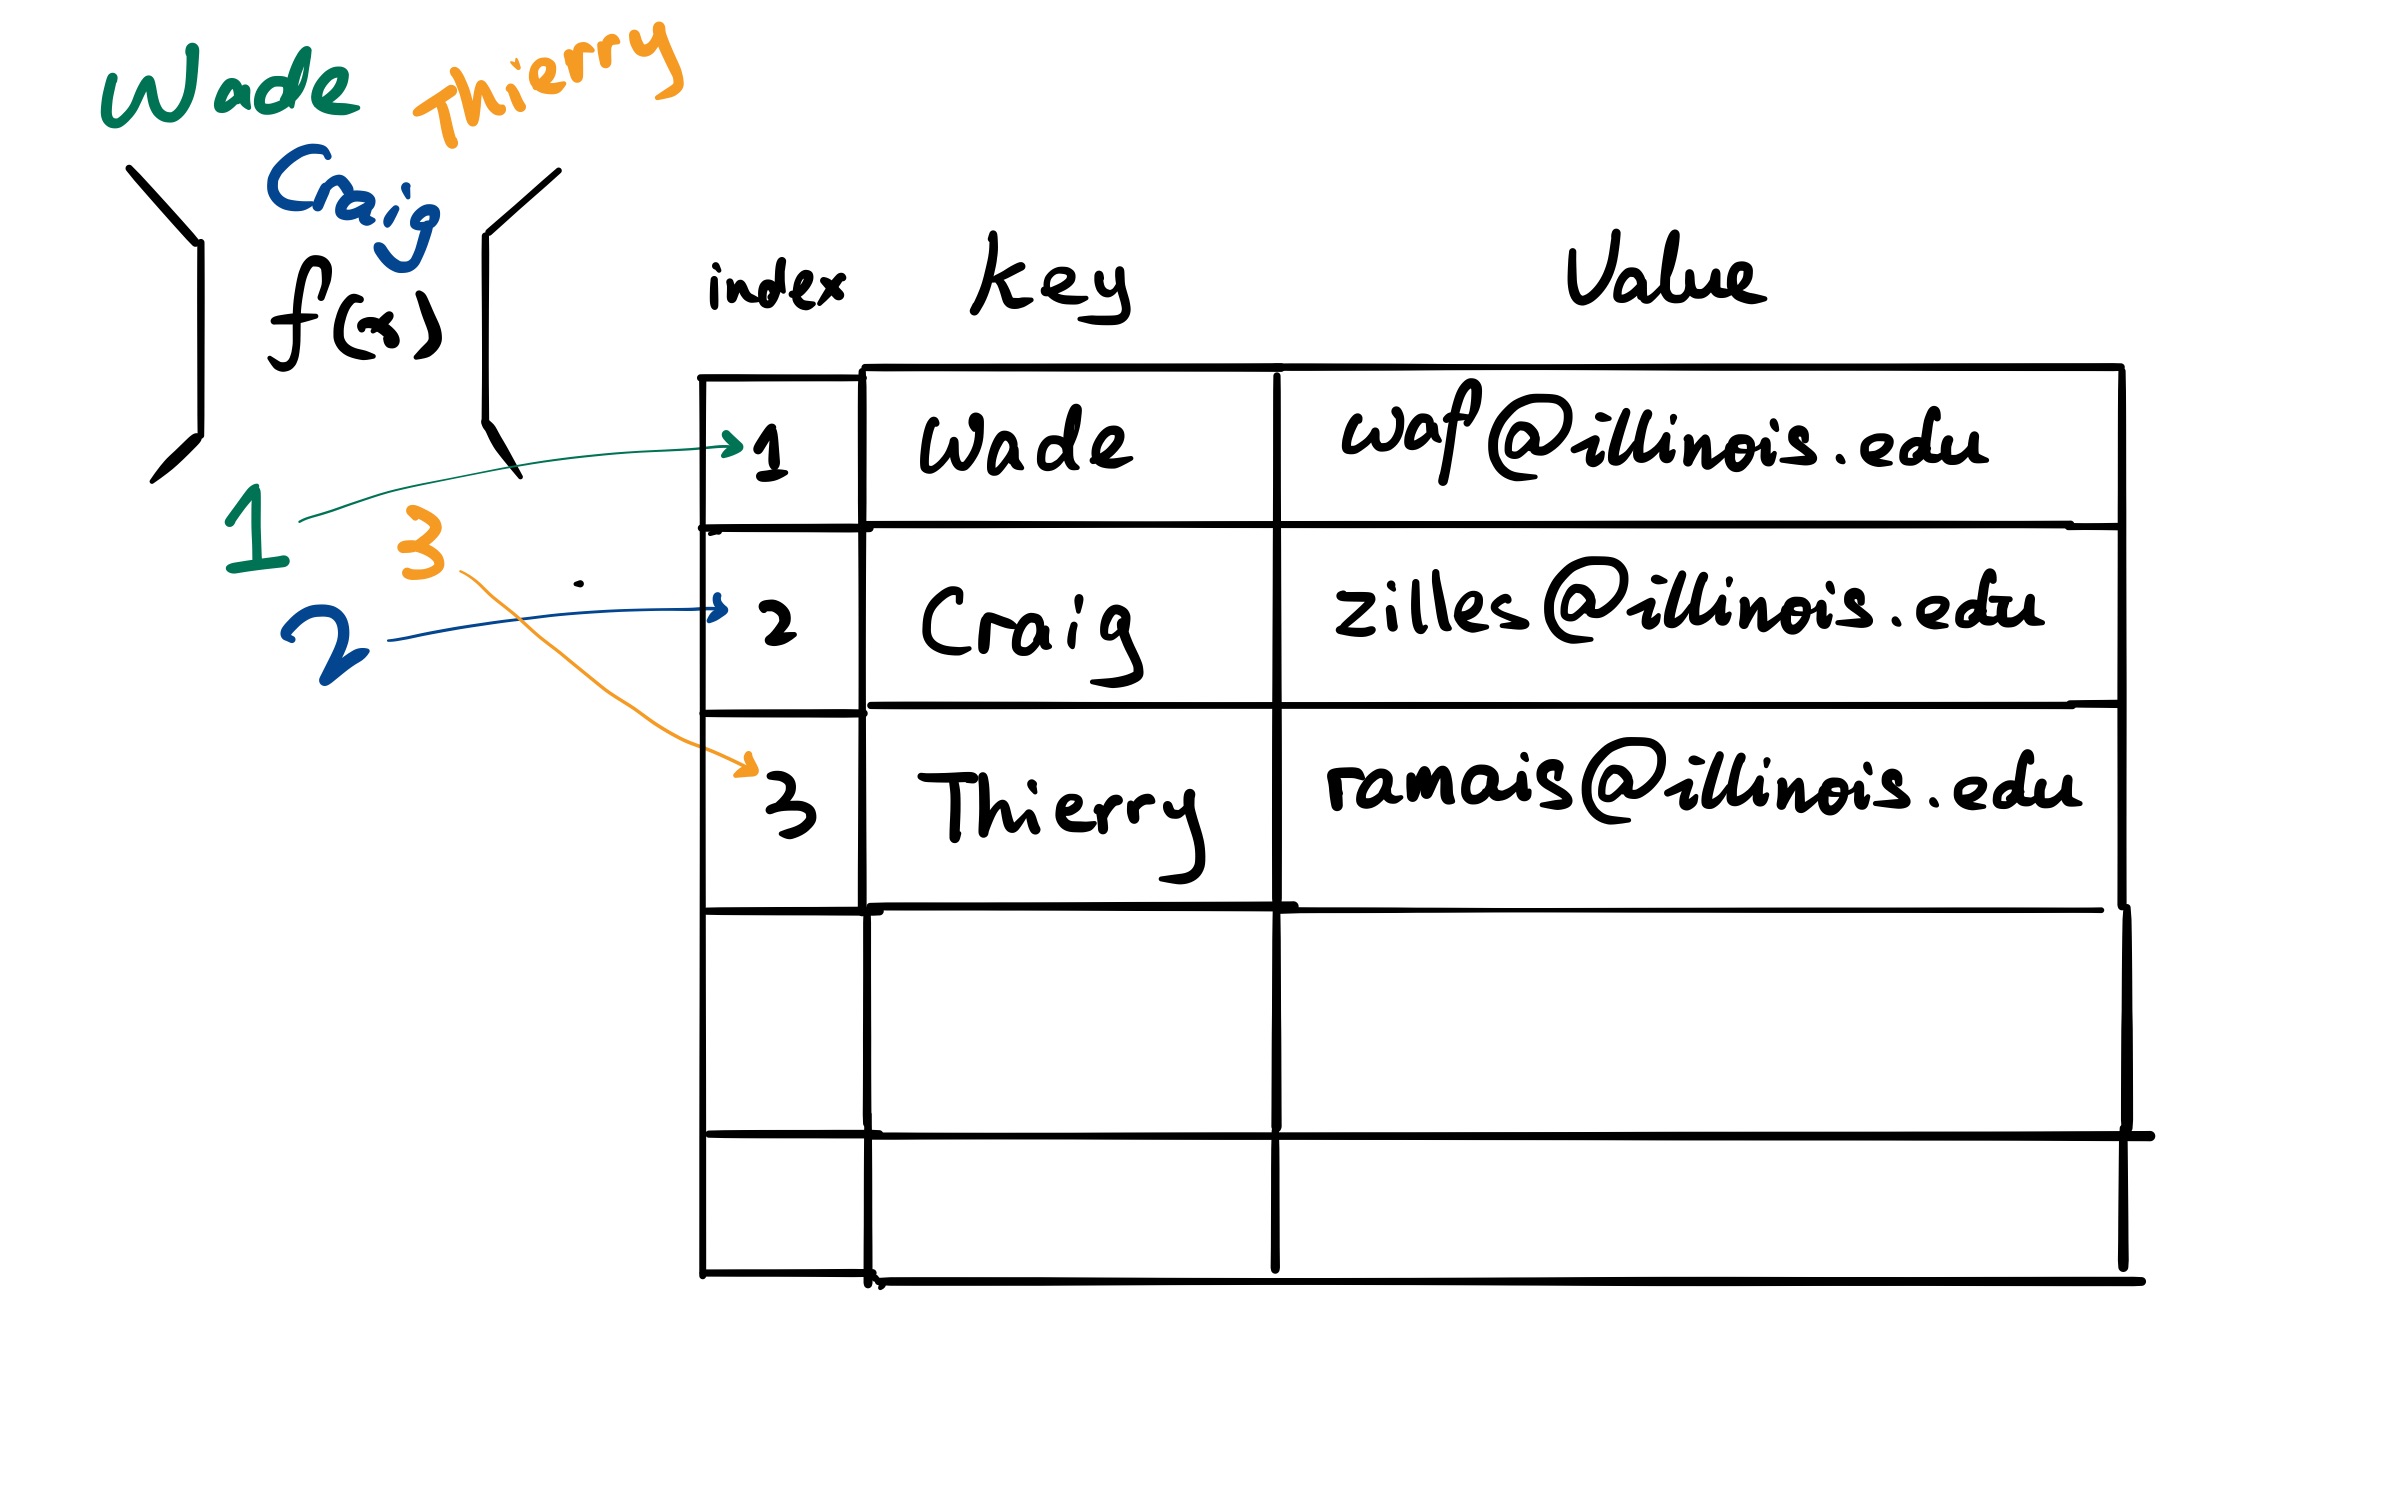 Wade
Thierry
Craig
f(x)
1
3
2
index key Value
1 Wade waf@illinois.edu
2 Craig zilles@illinois.edu
3 Thierry ramais@illinois.edu